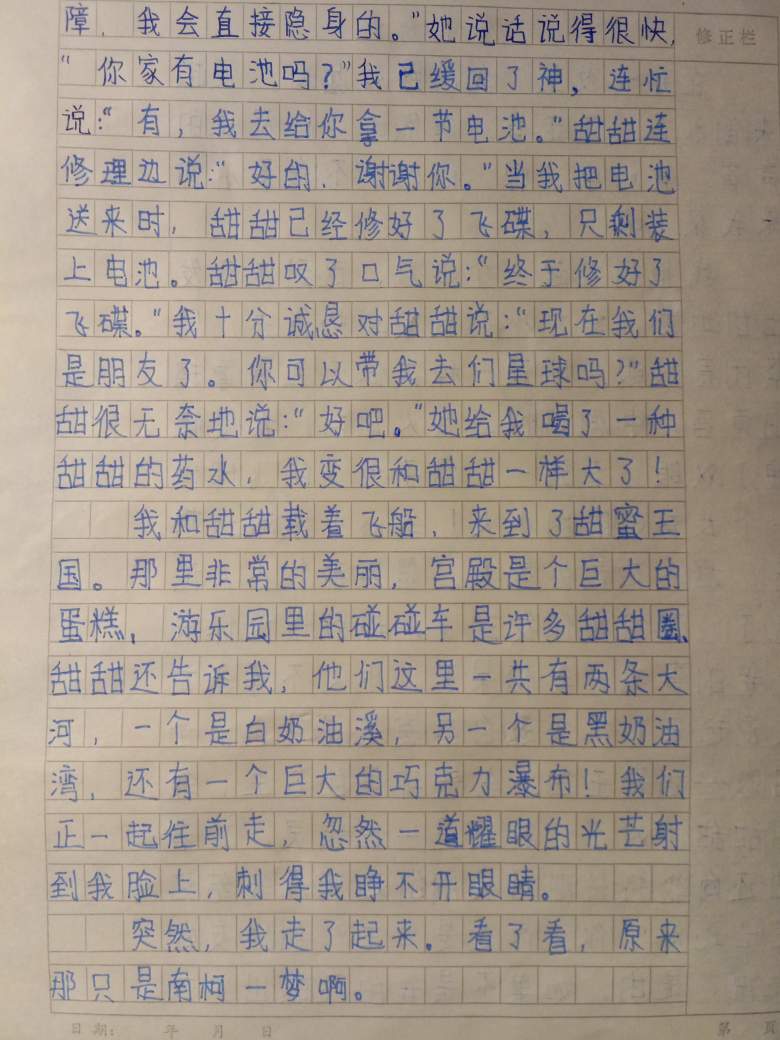 障，我会直接隐身的。"她说话说得很快，
修正栏
"你家有电池吗？"我已缓回了神，连忙
说："有，我去给你拿一节电池。"甜甜连
修理边说："好的，谢谢你。"当我把电池
送来时，甜甜已经修好了飞碟，只剩装
上电池。甜甜叹了口气说："终于修好了
飞碟。"我十分诚恳对甜甜说："现在我们
是朋友了。你可以带我去们星球吗？"甜
甜很无奈地说："好吧。"她给我喝了一种
甜甜的药水，我变很和甜甜一样大了！
我和甜甜载着飞船，来到了甜蜜王
国。那里非常的美丽，宫殿是个巨大的
蛋糕，游乐园里的碰碰车是许多甜甜圈、
甜甜还告诉我，他们这里一共有两条大
河，一个是白奶油溪，另一个是黑奶油
湾，还有一个巨大的巧克力瀑布！我们
正一起往前走，忽然一道耀眼的光芒射
到我脸上，刺得我睁不开眼睛。
突然，我走了起来。看了看，原来
那只是南柯一梦啊。
日期： 年 月 日 第 頁